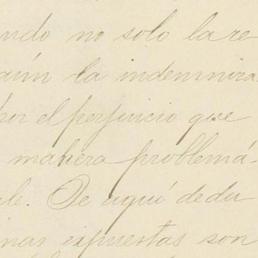 ndo no solo la re
aún la indemniza
por el perjuicio que
manera problemá-
le. De aquí dedu
nas expuestas son